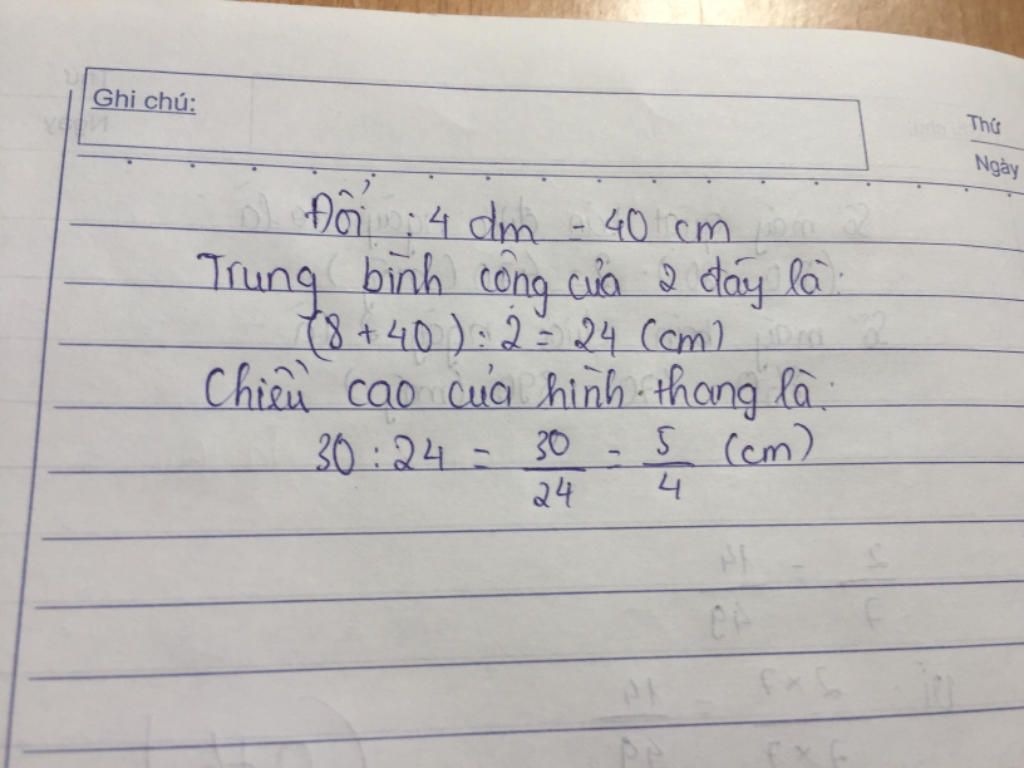 Ghi chú:
Thứ
Ngày
Đổi : 4 dm = 40 cm
Trung bình cộng của 2 đáy là:
(8 + 40) : 2 = 24 (cm)
Chiều cao của hình thang là:
30 : 24 = 30/24 = 5/4 (cm)